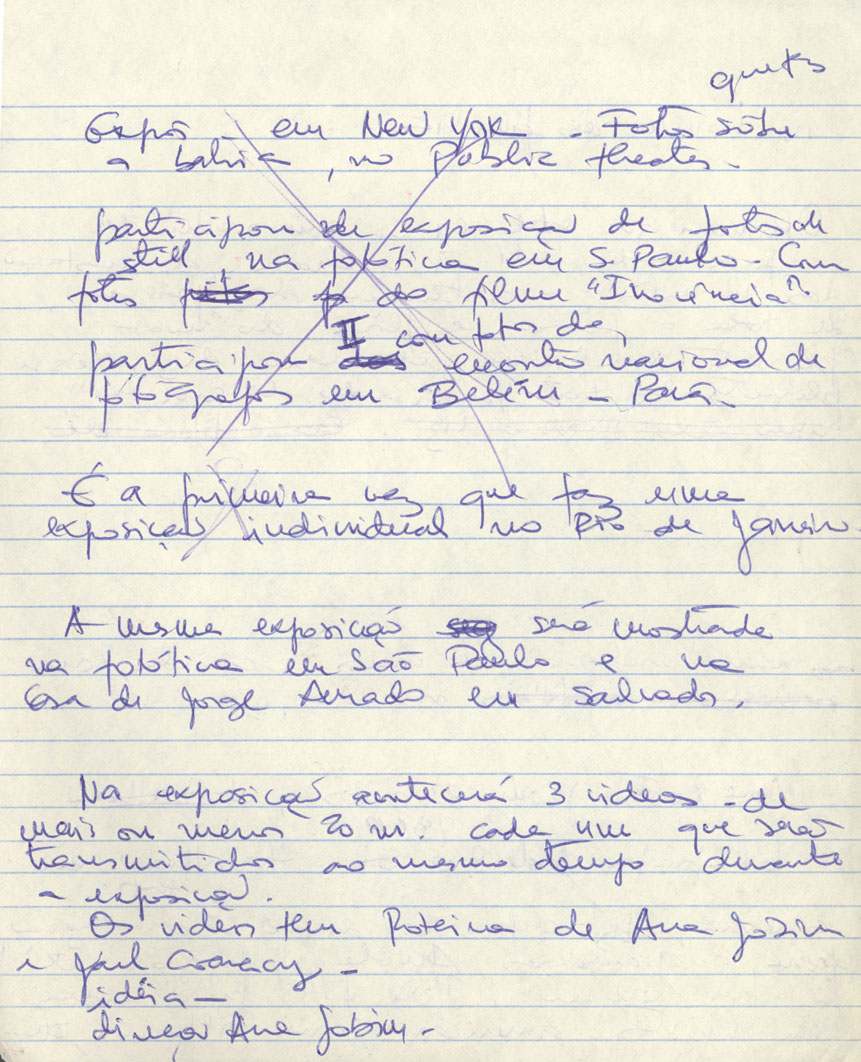 Expôs - em New York - Fotos sôbre
a bahia, no Public theater.
participou de exposição de fotos de
still na fotótica em S. Paulo - Com
fotos do filme "Inocência".
com fotos de,
participou II encontro nacional de
fotógrafos em Belém - Pará -
É a primeira vez que faz uma
exposição individual no Rio de Janeiro.
A mesma exposição será mostrada
na fotótica em São Paulo e na
Casa de Jorge Amado em Salvador.
Na exposição acontecerá 3 videos - de
mais ou menos 20 m. cada um que serão
transmitidos ao mesmo tempo durante
a exposição.
Os vidèos tem Roteiro de Ana Jobim
e
idéia -
direção Ana Jobim -